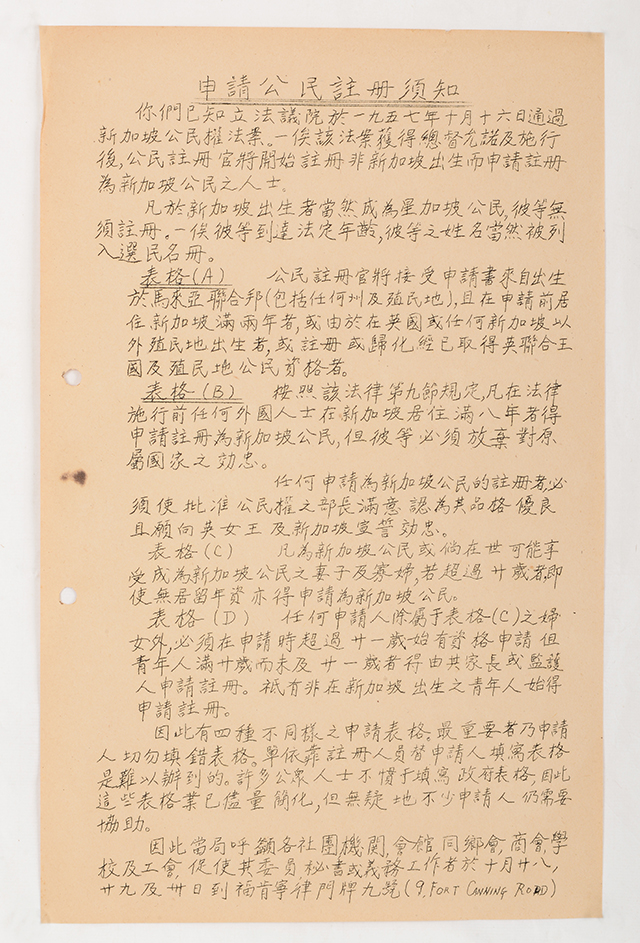 申請公民註册須知
你們已知立法議院於一九五七年十月十六日通過
新加坡公民權法案。一俟該法案獲得總督允諾及施行
後,公民註册官將開始註册非新加坡出生而申請註册
為新加坡公民之人士。
凡於新加坡出生者當然成為星加坡公民,彼等無
須註册。一俟彼等到達法定年齡,彼等之姓名當然被列
入選民名册。
表格(A) 公民註册官將接受申請書來自出生
於馬來亞聯合邦(包括任何州及殖民地),且在申請前居
住新加坡滿兩年者,或由於在英國或任何新加坡以
外殖民地出生者,或註册或歸化經已取得英聯合王
國及殖民地公民資格者。
表格(B) 按照該法律第九節規定,凡在法律
施行前任何外國人士在新加坡居住滿八年者得
申請註册為新加坡公民,但彼等必須放棄對原
屬國家之効忠。
任何申請為新加坡公民的註册者必
須使批准公民權之部長滿意認為其品格優良
且願向英女王及新加坡宣誓効忠。
表格(C) 凡為新加坡公民或倘在世可能享
受成為新加坡公民之妻子及寡婦,若超過廿歲者,即
使無居留年資亦得申請為新加坡公民。
表格(D) 任何申請人除屬于表格(C)之婦
女外,必須在申請時超過廿一歲始有資格申請但
青年人滿廿歲而未及廿一歲者得由其家長或監護
人申請註册。祇有非在新加坡出生之青年人始得
申請註册。
因此有四種不同樣之申請表格。最重要者乃申請
人切勿填錯表格。單依靠註册人員替申請人填寫表格
是難以辦到的。許多公眾人士不慣于填寫政府表格,因此
這些表格業已儘量簡化,但無疑地不少申請人仍需要
協助。
因此當局呼籲各社團機關,會館,同鄉會,商會,學
校及工會,促使其委員秘書或義務工作者於十月廿八,
廿九及卅日到福肯寧律門牌九號(9, FORT CANNING ROAD)